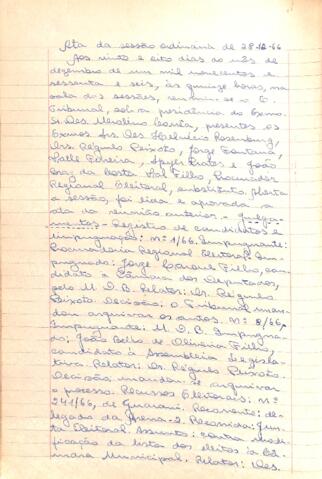 Ata da sessão ordinária de 28-12-66
Aos vinte e oito dias do mês de
dezembro de um mil novecentos e
sessenta e seis, às quinze horas, na
sala das sessões, reuniu-se o E.
Tribunal, sob a presidência do Exmo.
Sr. Des. Merolino Corrêa, presentes os
Exmos. Srs. Des. Helvécio Rosenburg,
Drs. Régulo Peixoto, Jorge Fontana,
Valle Ferreira, e João
Braz da Costa Val Filho, Procurador
Regional Eleitoral, substituto. Aberta
a sessão, foi lida e aprovada a
ata da reunião anterior. - Julga-
mentos - Registro de candidatos e
impugnação: nº 1/66. Impugnante:
Procuradoria Regional Eleitoral. Im-
pugnado: Jorge Filho, can-
didato à Câmara dos Deputados,
pelo M.D.B. Relator: Dr. Régulo
Peixoto. Decisão: O Tribunal man-
dou arquivar os autos. nº 8/66,
Impugnante: M.D.B. Impugna-
do: João Bello de Oliveira Filho,
candidato à Assembléia Legisla-
tiva. Relator: Dr. Régulo Peixoto.
Decisão: mandou-se arquivar
o processo. Recursos Eleitorais: nº
241/66, de Guarani. Recorrente: de-
legado da Arena-2. Recorrida: Jun-
ta Eleitoral. Assunto: contra modi-
ficação da lista dos eleitos à Câ-
mara Municipal. Relator: Des.